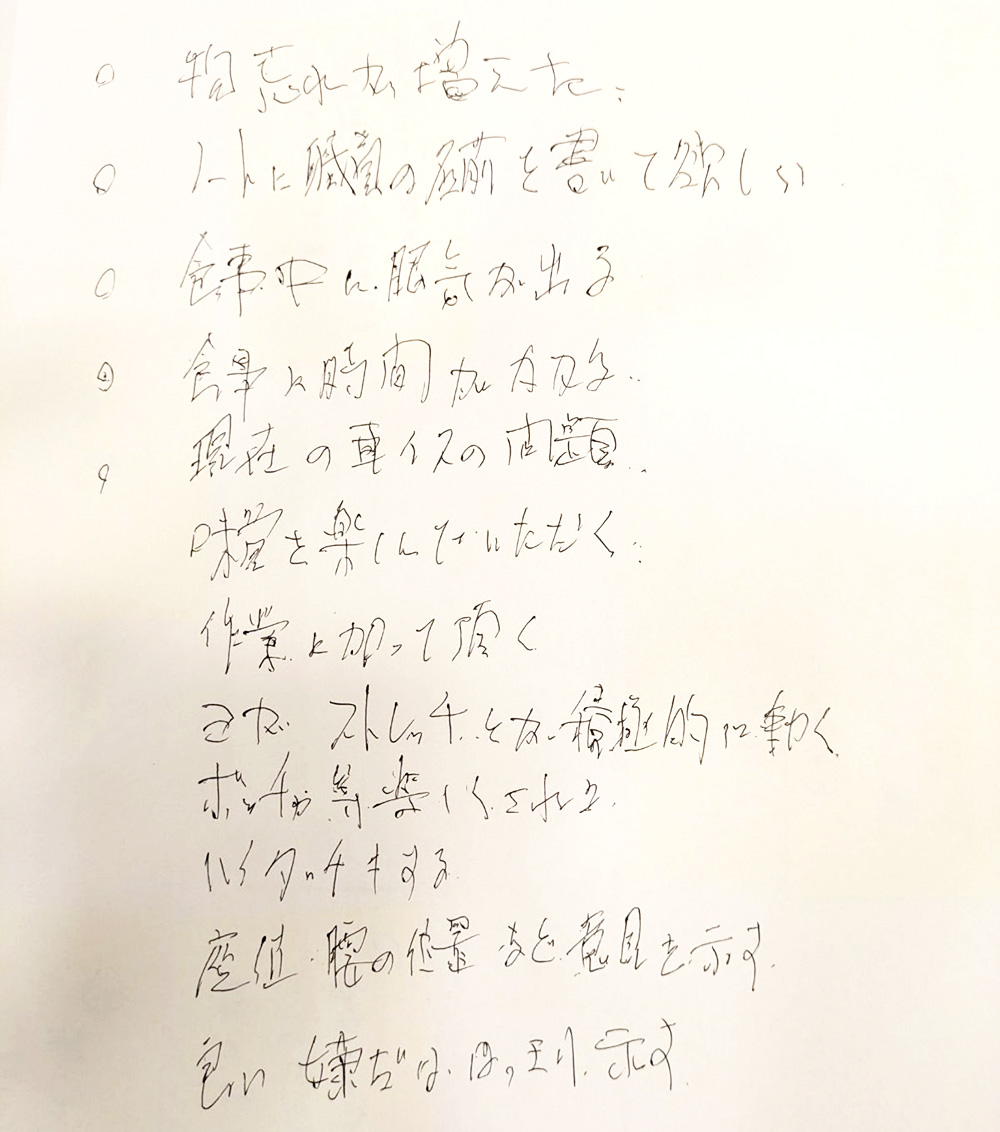 ○ 物忘れが増えた.
○ ノートに職員の名前を書いて欲しい.
○ 食事中に眠気が出る
○ 食事に時間がカカる.
○ 現在の車イスの問題.
味覚を楽しんでいただく.
作業に加って頂く
ストレッチとか積極的に動く
ボッチャ等楽しくされる.
ハイタッチもする.
座位.腰の位置など意見を示す.
良い 嫌だは.はっきり.示す.